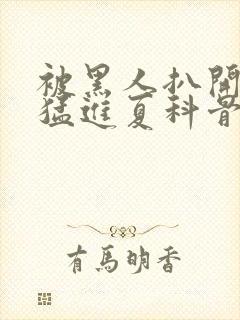 被黑人扒開
猛進夏科骨
有馬明香